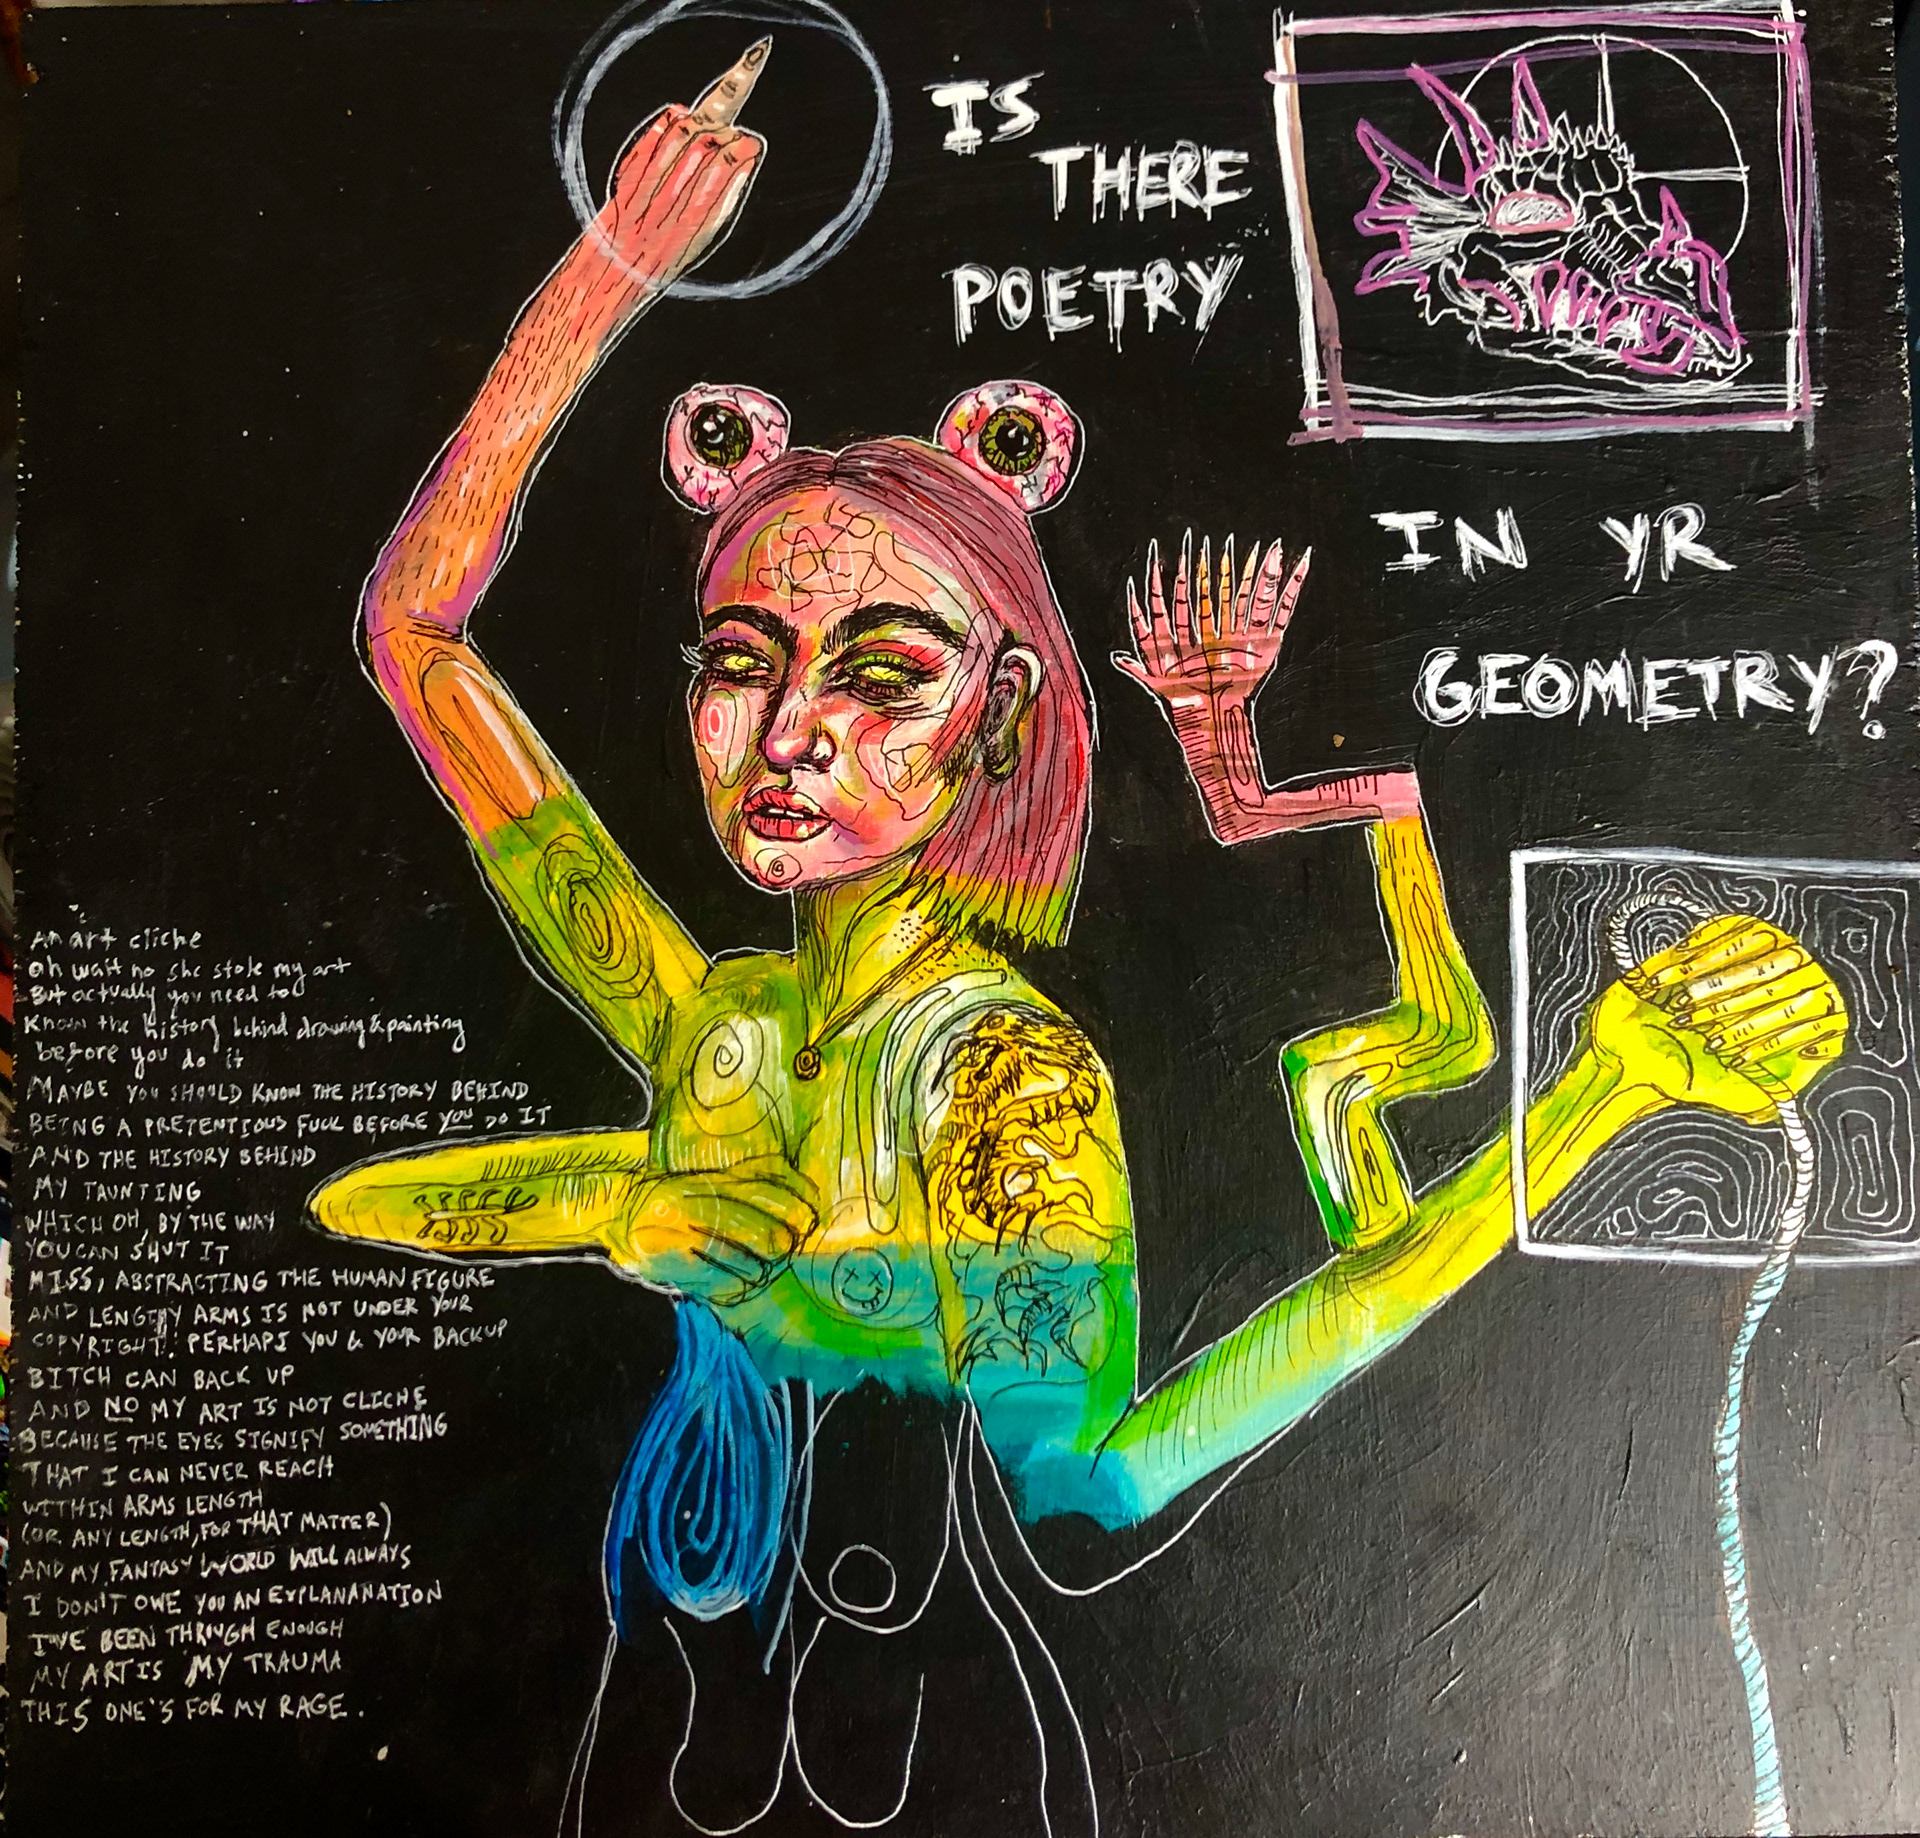 IS
THERE
POETRY
IN YR
GEOMETRY?
An art cliche
oh wait no she stole my art
But actually you need to
Know the history behind drawing & painting
before you do it
MAYBE YOU SHOULD KNOW THE HISTORY BEHIND
BEING A PRETENTIOUS FUCK BEFORE YOU DO IT
AND THE HISTORY BEHIND
MY TAUNTING
WHICH OH, BY THE WAY
YOU CAN SHUT IT
MISS, ABSTRACTING THE HUMAN FIGURE
AND LENGTHY ARMS IS NOT UNDER YOUR
COPYRIGHT. PERHAPS YOU & YOUR BACKUP
BITCH CAN BACK UP
AND NO MY ART IS NOT CLICHE
BECAUSE THE EYES SIGNIFY SOMETHING
THAT I CAN NEVER REACH
WITHIN ARMS LENGTH
(OR ANY LENGTH, FOR THAT MATTER)
AND MY FANTASY WORLD WILL ALWAYS
I DON'T OWE YOU AN EXPLANANATION
I'VE BEEN THROUGH ENOUGH
MY ART IS MY TRAUMA
THIS ONE'S FOR MY RAGE.